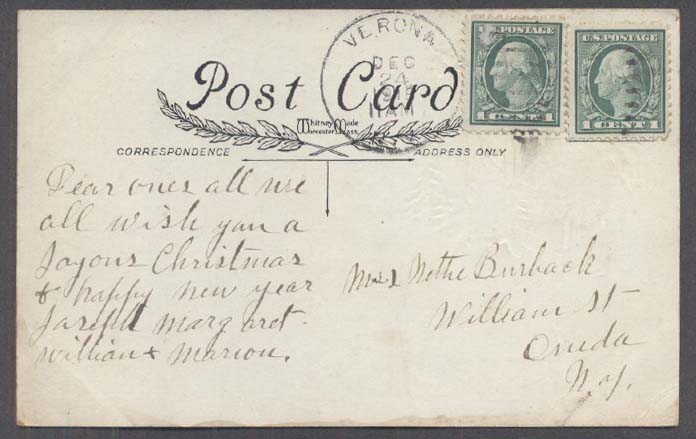 VERONA
DEC
24
11 AM
U.S. POSTAGE
1 CENT 1
U.S. POSTAGE
1 CENT 1
Post Card
Whitney Made
Worcester, Mass.
CORRESPONDENCE
ADDRESS ONLY
Dear ones all we
all wish you a
Joyous Christmas
& happy new year
Margaret
William & Marion.
Mrs Nettie Burback
William St
Oneida
N.Y.